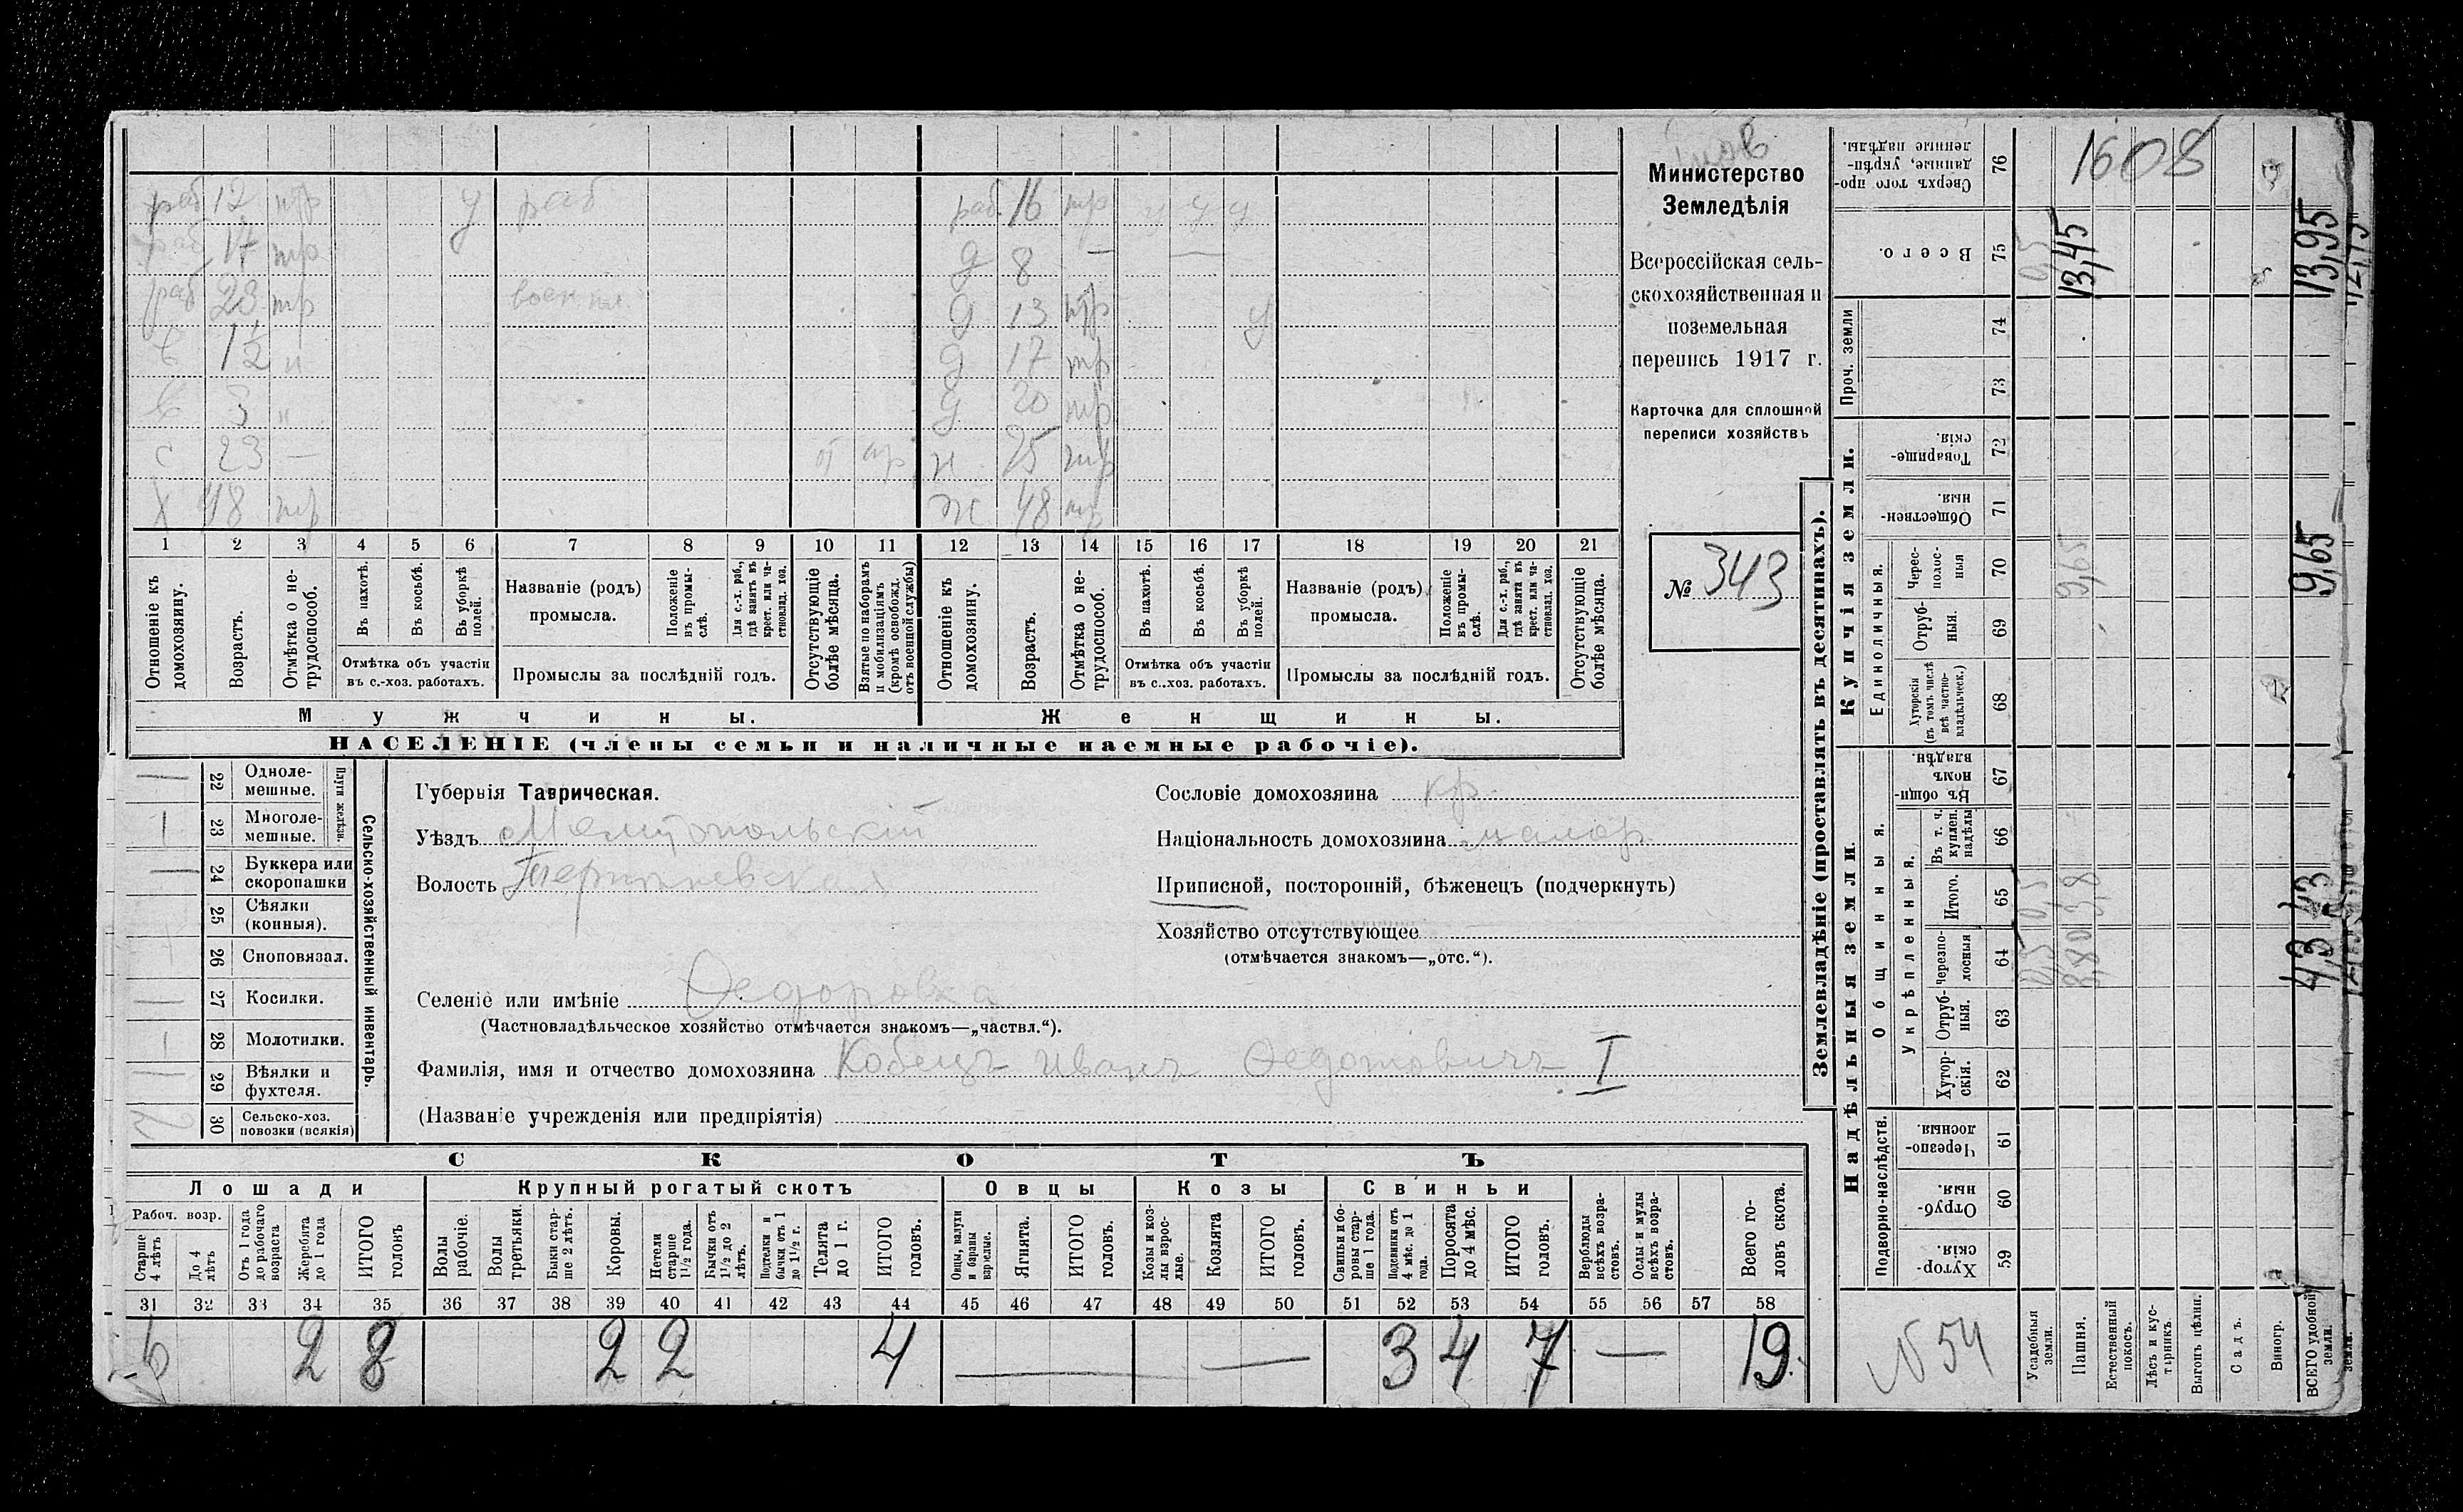 раб 12 тр у раб
17 тр
раб 23 тр
с 1½ н
3 н
с 23 —
Х 48 тр
раб 16 тр у у у
д 8 — —
д 13 тр у
д 17 тр
д 20 тр
н 25 тр
ж 48 тр
1 2 3 4 5 6 7 8 9 10 11 12 13 14 15 16 17 18 19 20 21
Отношеніе къ домохозяину.
Возрастъ.
Отмѣтка о не-
трудоспособ.
Въ пахотѣ.
Въ косьбѣ.
Въ уборкѣ полей.
Отмѣтка объ участіи
въ с.-хоз. работахъ.
Названіе (родъ)
промысла.
Положеніе въ промы-
слѣ.
Для с.-х. раб., гдѣ занятъ въ крест. или ча-
стновлад. хоз.
Промыслы за послѣдній годъ.
Отсутствующіе болѣе мѣсяца.
Взятые по наборамъ и мобилизаціямъ (кромѣ освобожд. отъ военной службы)
Отношеніе къ домохозяину.
Возрастъ.
Отмѣтка о не-
трудоспособ.
Въ пахотѣ.
Въ косьбѣ.
Въ уборкѣ полей.
Отмѣтка объ участіи
въ с..хоз. работахъ.
Названіе (родъ)
промысла.
Положеніе въ промы-
слѣ.
Для с.-х. раб., гдѣ занята въ крест. или ча-
стновлад. хоз.
Промыслы за послѣдній годъ.
Отсутствующіе болѣе мѣсяца.
Мужчины.
Женщины.
НАСЕЛЕНІЕ (члены семьи и наличные наемные рабочіе).
Министерство
Земледѣлія
Всероссійская сель-
скохозяйственная и
поземельная
перепись 1917 г.
Карточка для сплошной
переписи хозяйствъ
№ 343
Плуги желѣзн.
Сельско-хозяйственный инвентарь.
— 22 Одноле-
мешные.
1 23 Многоле-
мешные.
— 24 Буккера или
скоропашки
25 Сѣялки
(конныя).
26 Сноповязал.
— 27 Косилки.
1 28 Молотилки.
— 29 Вѣялки и
фухтеля.
30 Сельско-хоз.
повозки (всякія)
Губернія Таврическая.
Уѣздъ Мелитопольскій
Волость
Сословіе домохозяина кр.
Національность домохозяина малор.
Приписной, посторонній, бѣженецъ (подчеркнуть)
Хозяйство отсутствующее
(отмѣчается знакомъ—„отс.“).
Селеніе или имѣніе Федоровка
(Частновладѣльческое хозяйство отмѣчается знакомъ—„частвл.“).
Фамилія, имя и отчество домохозяина Кобецъ Иванъ Федотовичъ I
(Названіе учрежденія или предпріятія)
СКОТЪ
Лошади
Крупный рогатый скотъ
Овцы
Козы
Свиньи
Рабоч. возр.
Старше 4 лѣтъ
До 4 лѣтъ
Отъ 1 года до рабочаго возраста
Жеребята до 1 года
ИТОГО головъ
Волы рабочіе.
Волы третьяки.
Быки стар-
ше 2 лѣтъ.
Коровы.
Нетели старше 1½ года.
Бычки отъ 1½ до 2 лѣтъ.
Подтелки и бычки отъ 1 до 1½ г.
Телята до 1 г.
ИТОГО головъ.
Овцы, валухи и бараны взрослые.
Ягнята.
ИТОГО головъ.
Козы и коз-
лы взрос-
лые.
Козлята
ИТОГО головъ.
Свиньи и бо-
ровы стар-
ше 1 года.
Подсвинки отъ 4 мѣс. до 1 года.
Поросята до 4 мѣс.
ИТОГО головъ.
Верблюды всѣхъ возра-
стовъ.
Ослы и мулы всѣхъ возра-
стовъ.
Всего го-
ловъ скота.
31 32 33 34 35 36 37 38 39 40 41 42 43 44 45 46 47 48 49 50 51 52 53 54 55 56 57 58
6 2 8 2 2 4 — — 3 4 7 — 19
Землевладѣніе (проставлять въ десятинахъ).
Купчія земли.
Надѣльныя земли.
Сверхъ того про-
данные, укрѣп-
ленные надѣлы. 76 1608
Всего. 75 0,5 13,45 13,95
Проч. земли 74
73
Товарище-
скія. 72
Обществен-
ныя. 71
Единоличныя.
Черес-
полос-
ныя 70 9,65 9,65
Отруб-
ныя. 69
Хуторскія
(въ томъ числѣ
всѣ частно-
владѣльческ.) 68
Общинныя.
Въ общин-
номъ
владѣн. 67
Укрѣпленныя.
Въ т. ч.
куплен.
надѣлы 66
Итого. 65 0,5 3,8 43
Черезпо-
лосныя 64 0,5 3,80 4,3
Отруб-
ныя. 63
Хутор-
скія. 62
Подворно-наслѣдств.
Черезпо-
лосныя 61
Отруб-
ныя. 60
Хутор-
скія 59
N 54
Усадебныя земли.
Пашня.
Естественный покосъ.
Лѣсъ и кус-
тарникъ.
Выгонъ цѣлин.
Садъ.
Виногр.
ВСЕГО удобной земли.